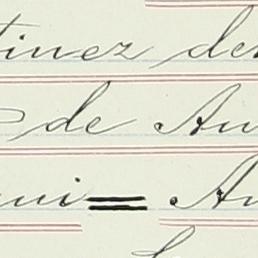 tinez de
de Au
ui = Au